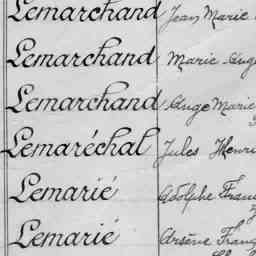 Lemarchand Jean Marie
Lemarchand Marie-Ange
Lemarchand Ange Marie
Lemaréchal Jules Henri
Lemarié Adolphe
Lemarié Arsène